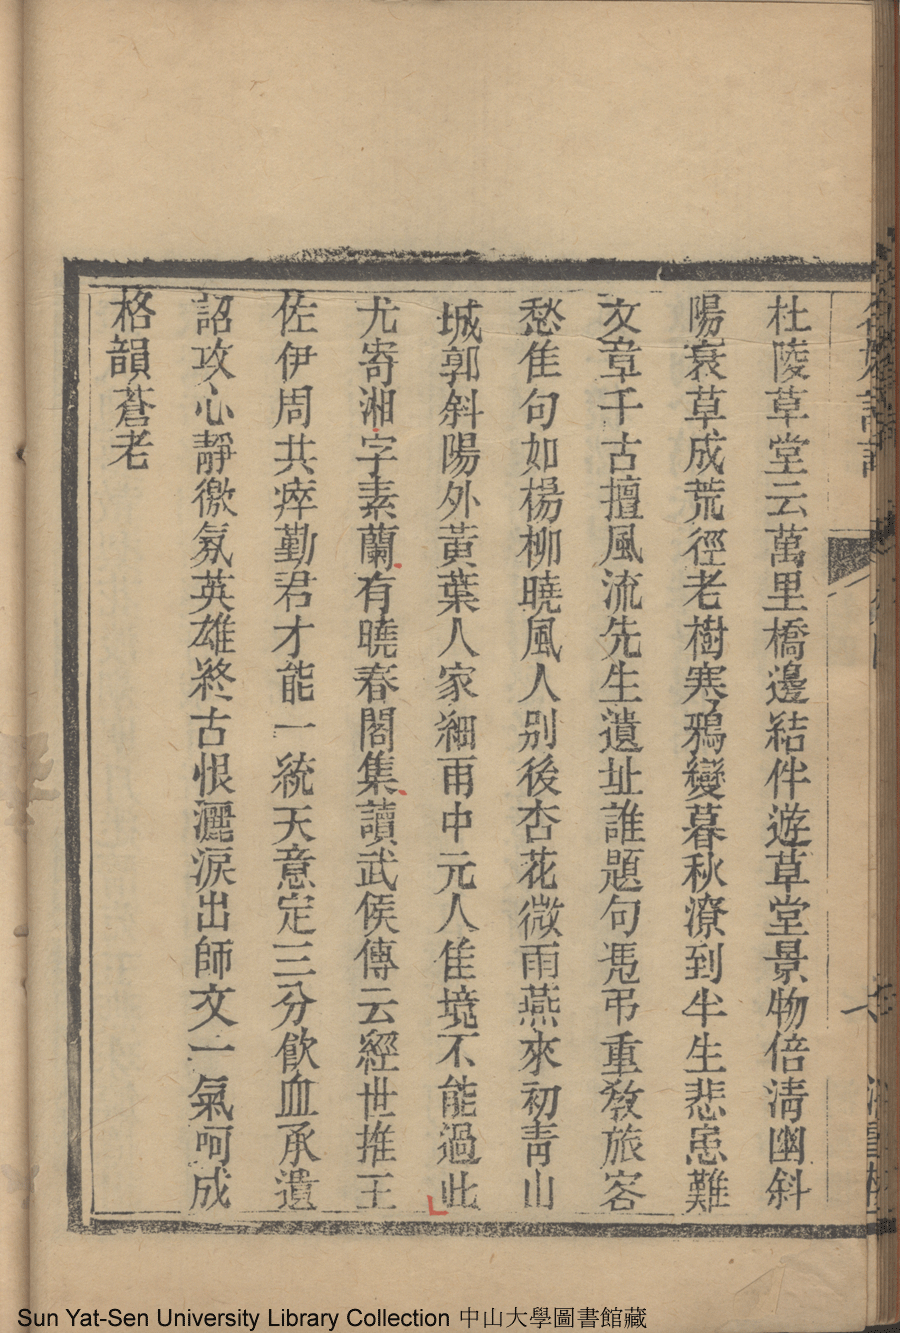 杜陵草堂云萬里橋邊結伴遊草堂景物倍淸幽斜
陽衰草成荒徑老樹寒鴉變暮秋潦到半生悲患難
文章千古擅風流先生遺址誰題句凭弔重敎旅客
愁佳句如楊柳曉風人别後杏花微雨燕來初靑山
城郭斜陽外黃葉人家細雨中元人佳境不能過此
尤寄湘字素蘭有曉春閣集讀武侯傳云經世推王
佐伊周共瘁勤君才能一統天意定三分飲血承遺
詔攻心靜徼氛英雄終古恨灑淚出師文一氣呵成
格韻蒼老
Sun Yat-Sen University Library Collection 中山大學圖書館藏